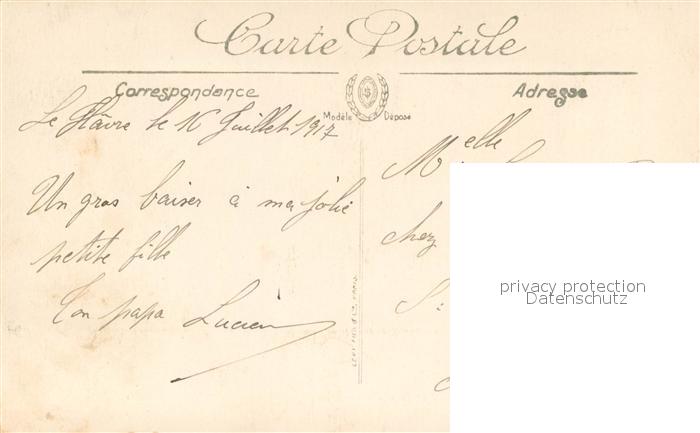 Carte Postale
Correspondance
Modèle Déposé
Adresse
Le Hâvre le 16 Juillet 1917
Un gros baiser à ma jolie
petite fille
Ton papa Lucien
Melle
chez
S:
privacy protection
Datenschutz